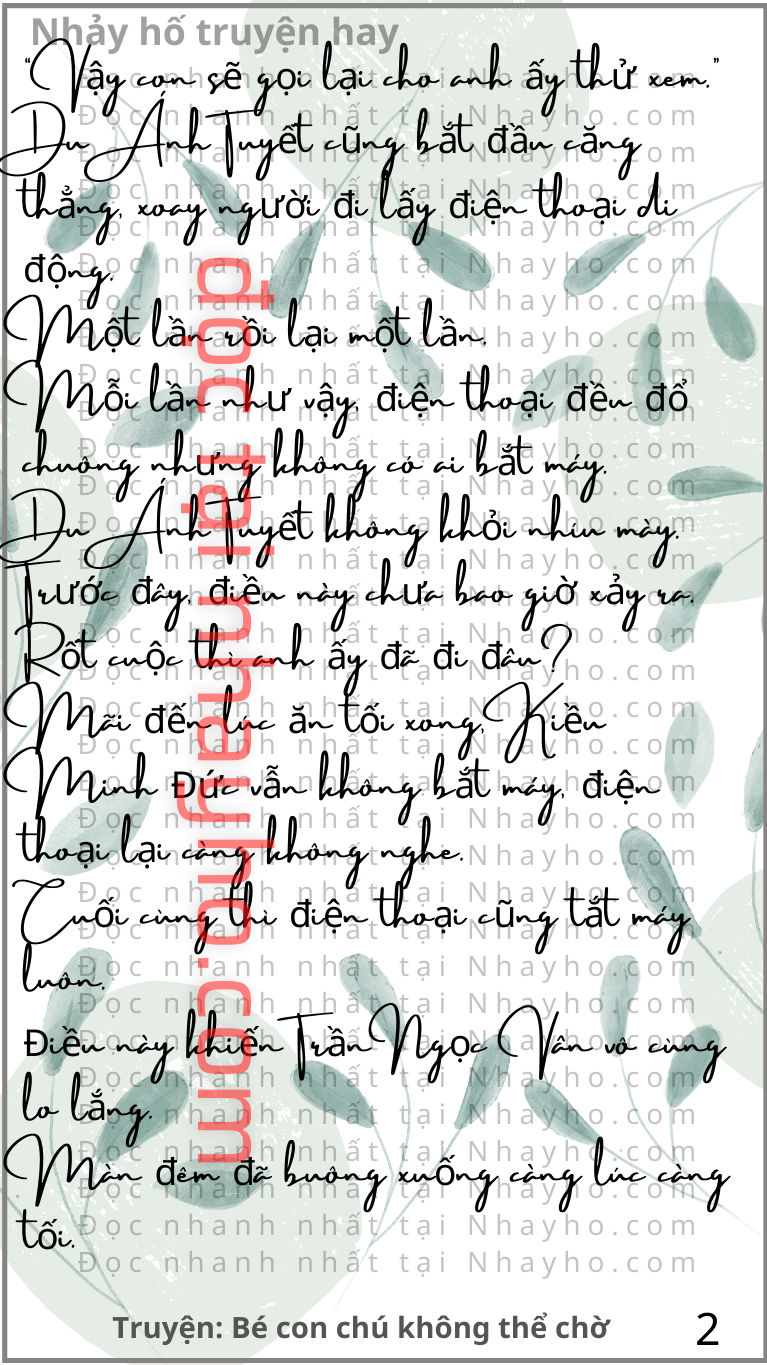 Nhảy hố truyện hay
“Vậy con sẽ gọi lại cho anh ấy thử xem.”
Du Ánh Tuyết cũng bắt đầu căng
thẳng, xoay người đi lấy điện thoại di
động.
Một lần rồi lại một lần.
Mỗi lần như vậy, điện thoại đều đổ
chuông nhưng không có ai bắt máy.
Du Ánh Tuyết không khỏi nhíu mày.
Trước đây, điều này chưa bao giờ xảy ra.
Rốt cuộc thì anh ấy đã đi đâu?
Mãi đến lúc ăn tối xong, Kiều
Minh Đức vẫn không bắt máy, điện
thoại lại càng không nghe.
Cuối cùng thì điện thoại cũng tắt máy
luôn.
Điều này khiến Trần Ngọc Vân vô cùng
lo lắng.
Màn đêm đã buông xuống càng lúc càng
tối.
đọc tại nhayho.com
Đọc nhanh nhất tại Nhayho.com
Truyện: Bé con chú không thể chờ
2